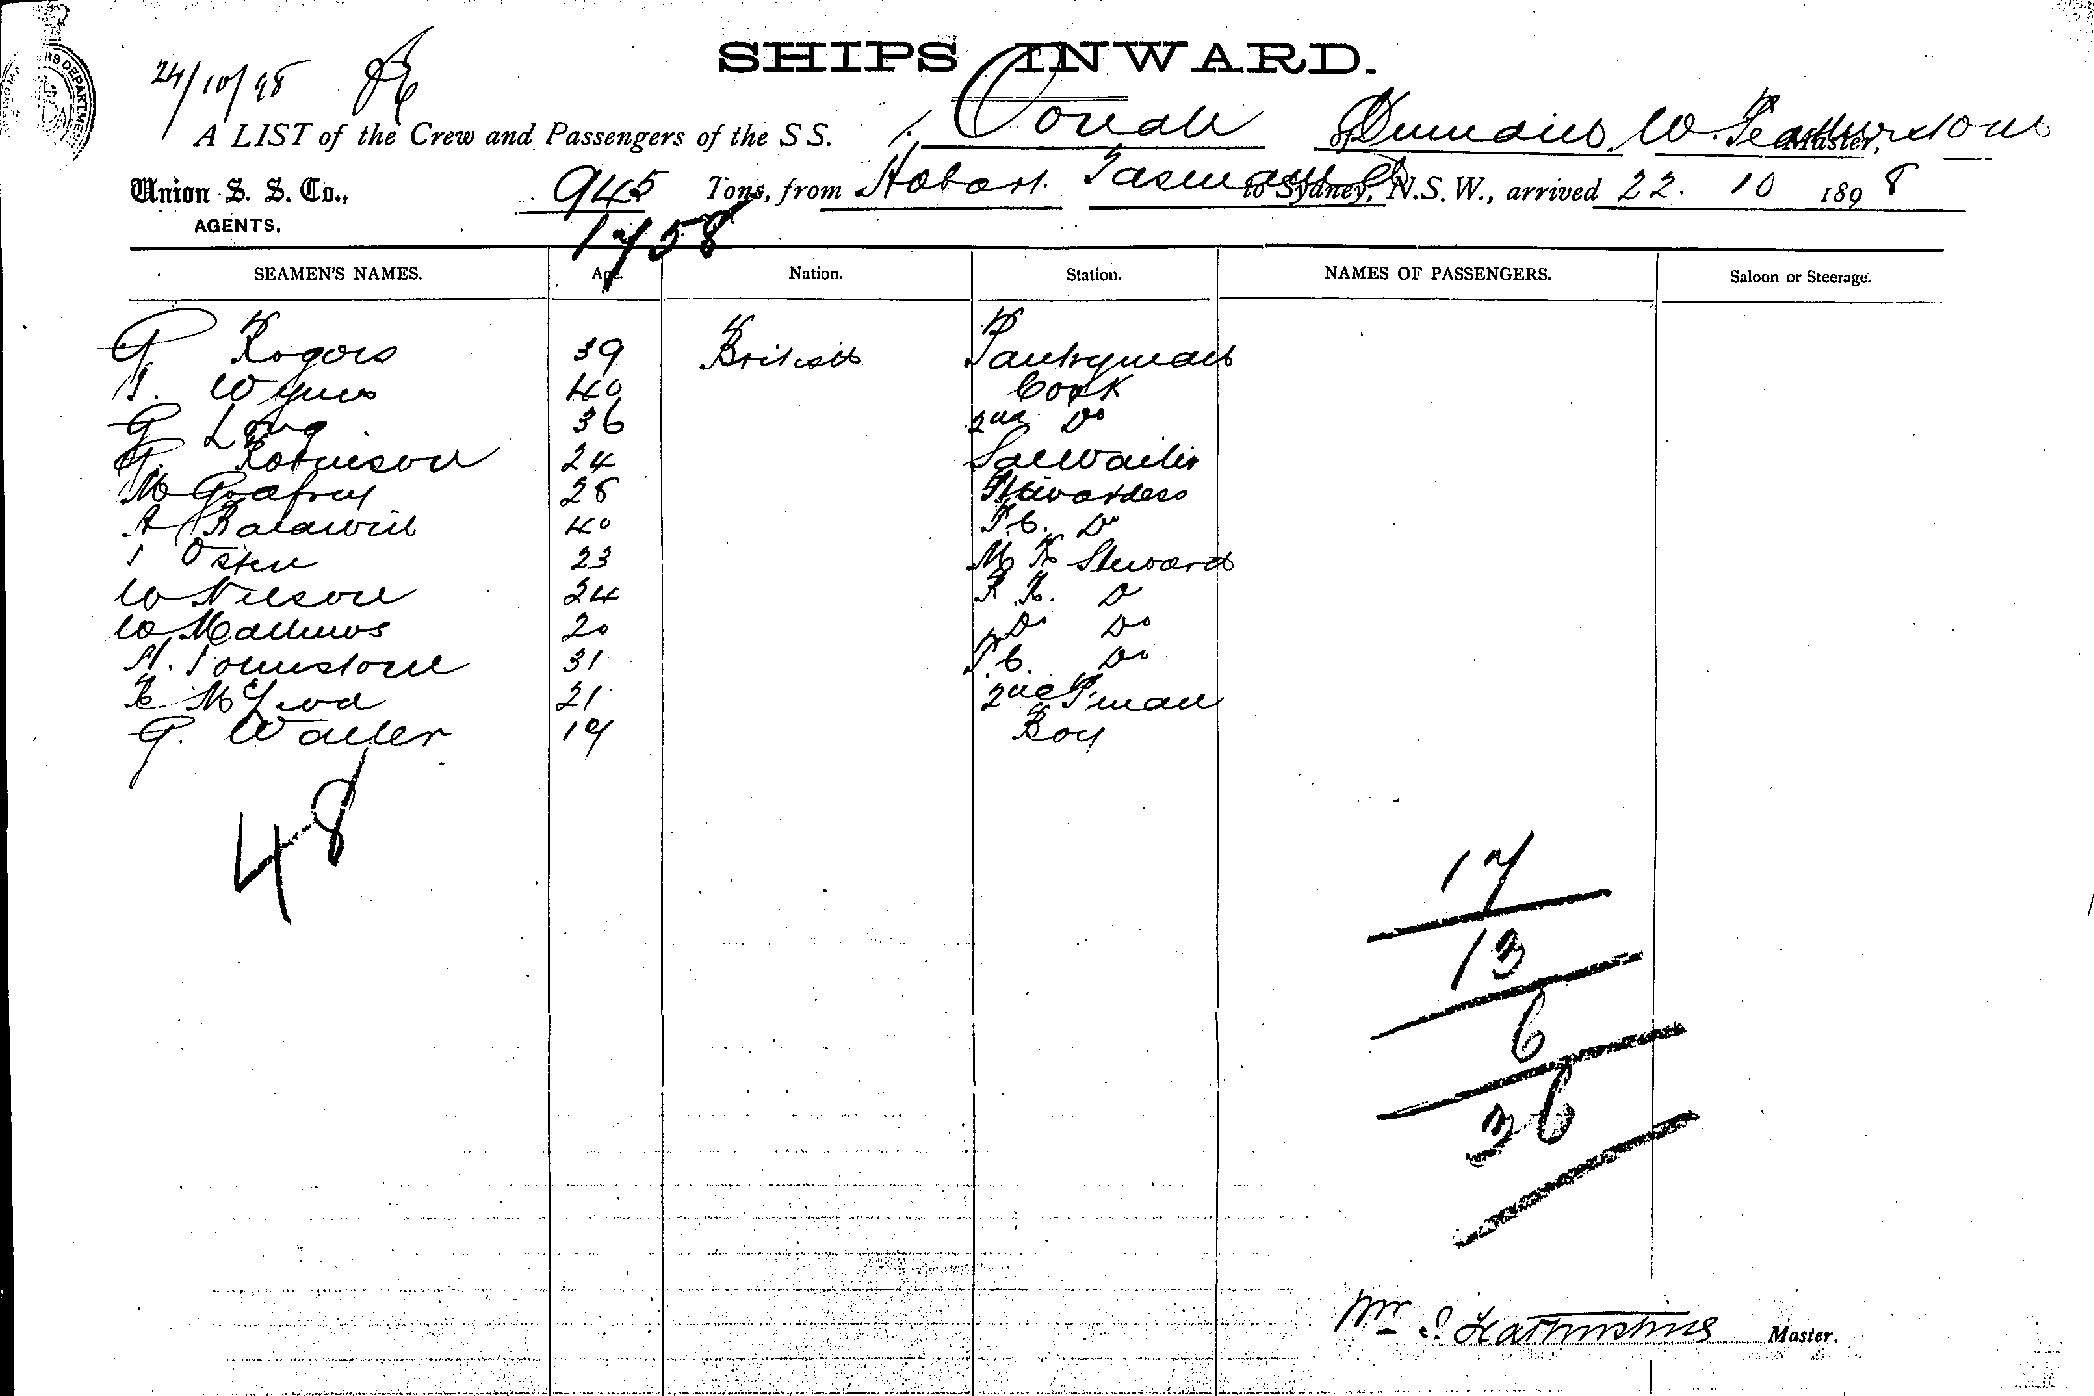 SHIPS INWARD.
24/10/98
A LIST of the Crew and Passengers of the S S. Oonah of Dunedin, W. Featherstone Master,
Union S. S. Co., AGENTS, 945 Tons, from Hobart Tasmania to Sydney, N.S.W., arrived 22. 10 1898
1758
SEAMEN'S NAMES. Age. Nation. Station. NAMES OF PASSENGERS. Saloon or Steerage.
G Rogers 39 British Pantryman
Wynes 40 Cook
G Long 36 2nd Do
G. Robinson 24 Salwaiter
M Godfrey 28 Stewardess
A Baldwin 40 F.C. Do
Osten 23 M R Steward
W Nelson 24 F R. D
W Mathews 20 Do Do
H. Johnstone 31 F C. Do
R McLeod 21 2nd P.man
G. Waller 17 Boy
48
17
13
6
36
Wm S. Featherstone Master.